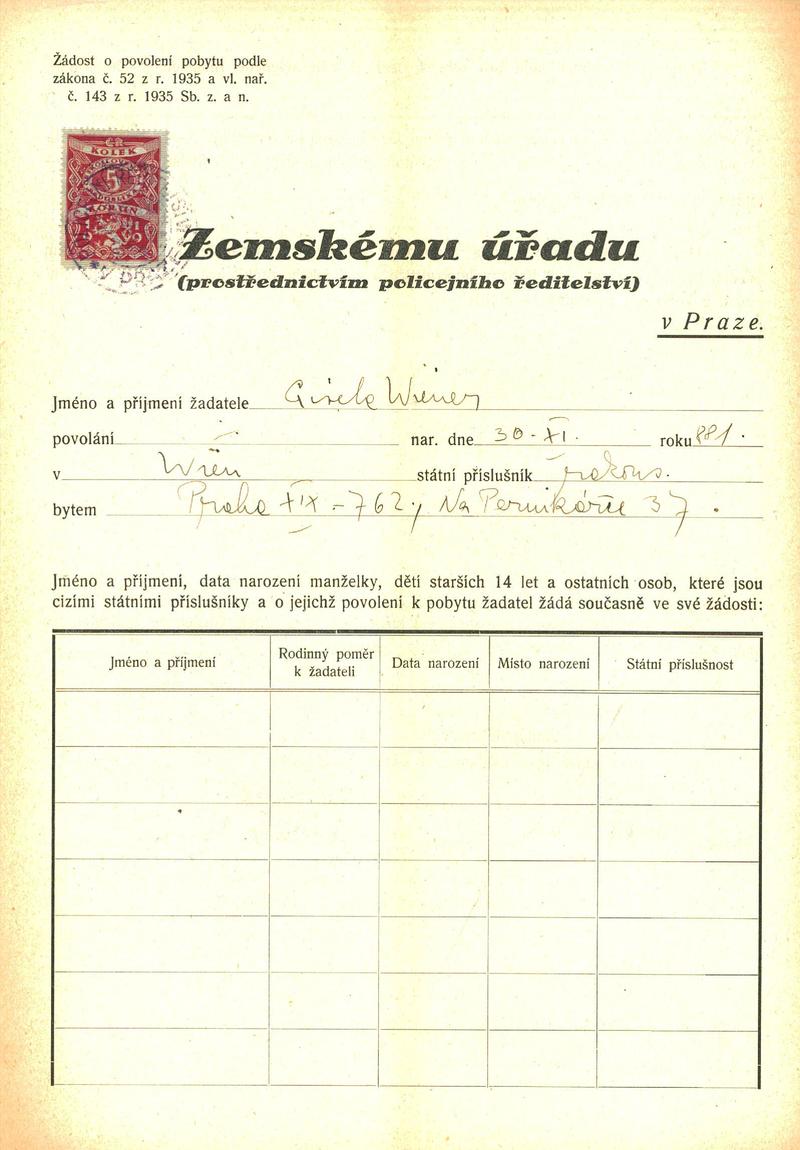 Žádost o povolení pobytu podle
zákona č. 52 z r. 1935 a vl. nař.
č. 143 z r. 1935 Sb. z. a n.
KOLEK
5
KORUN
Zemskému úřadu
(prostřednictvím policejního ředitelství)
v Praze.
Jméno a příjmení žadatele Gisela Wiener
povolání — nar. dne 30. XI. roku 881.
v Wien státní příslušník rakous.
bytem Praha XIX - 762, Na Pernikářce 37.
Jméno a příjmení, data narození manželky, dětí starších 14 let a ostatních osob, které jsou
cizími státními příslušníky a o jejichž povolení k pobytu žadatel žádá současně ve své žádosti:
Jméno a příjmení Rodinný poměr k žadateli Data narození Místo narození Státní příslušnost